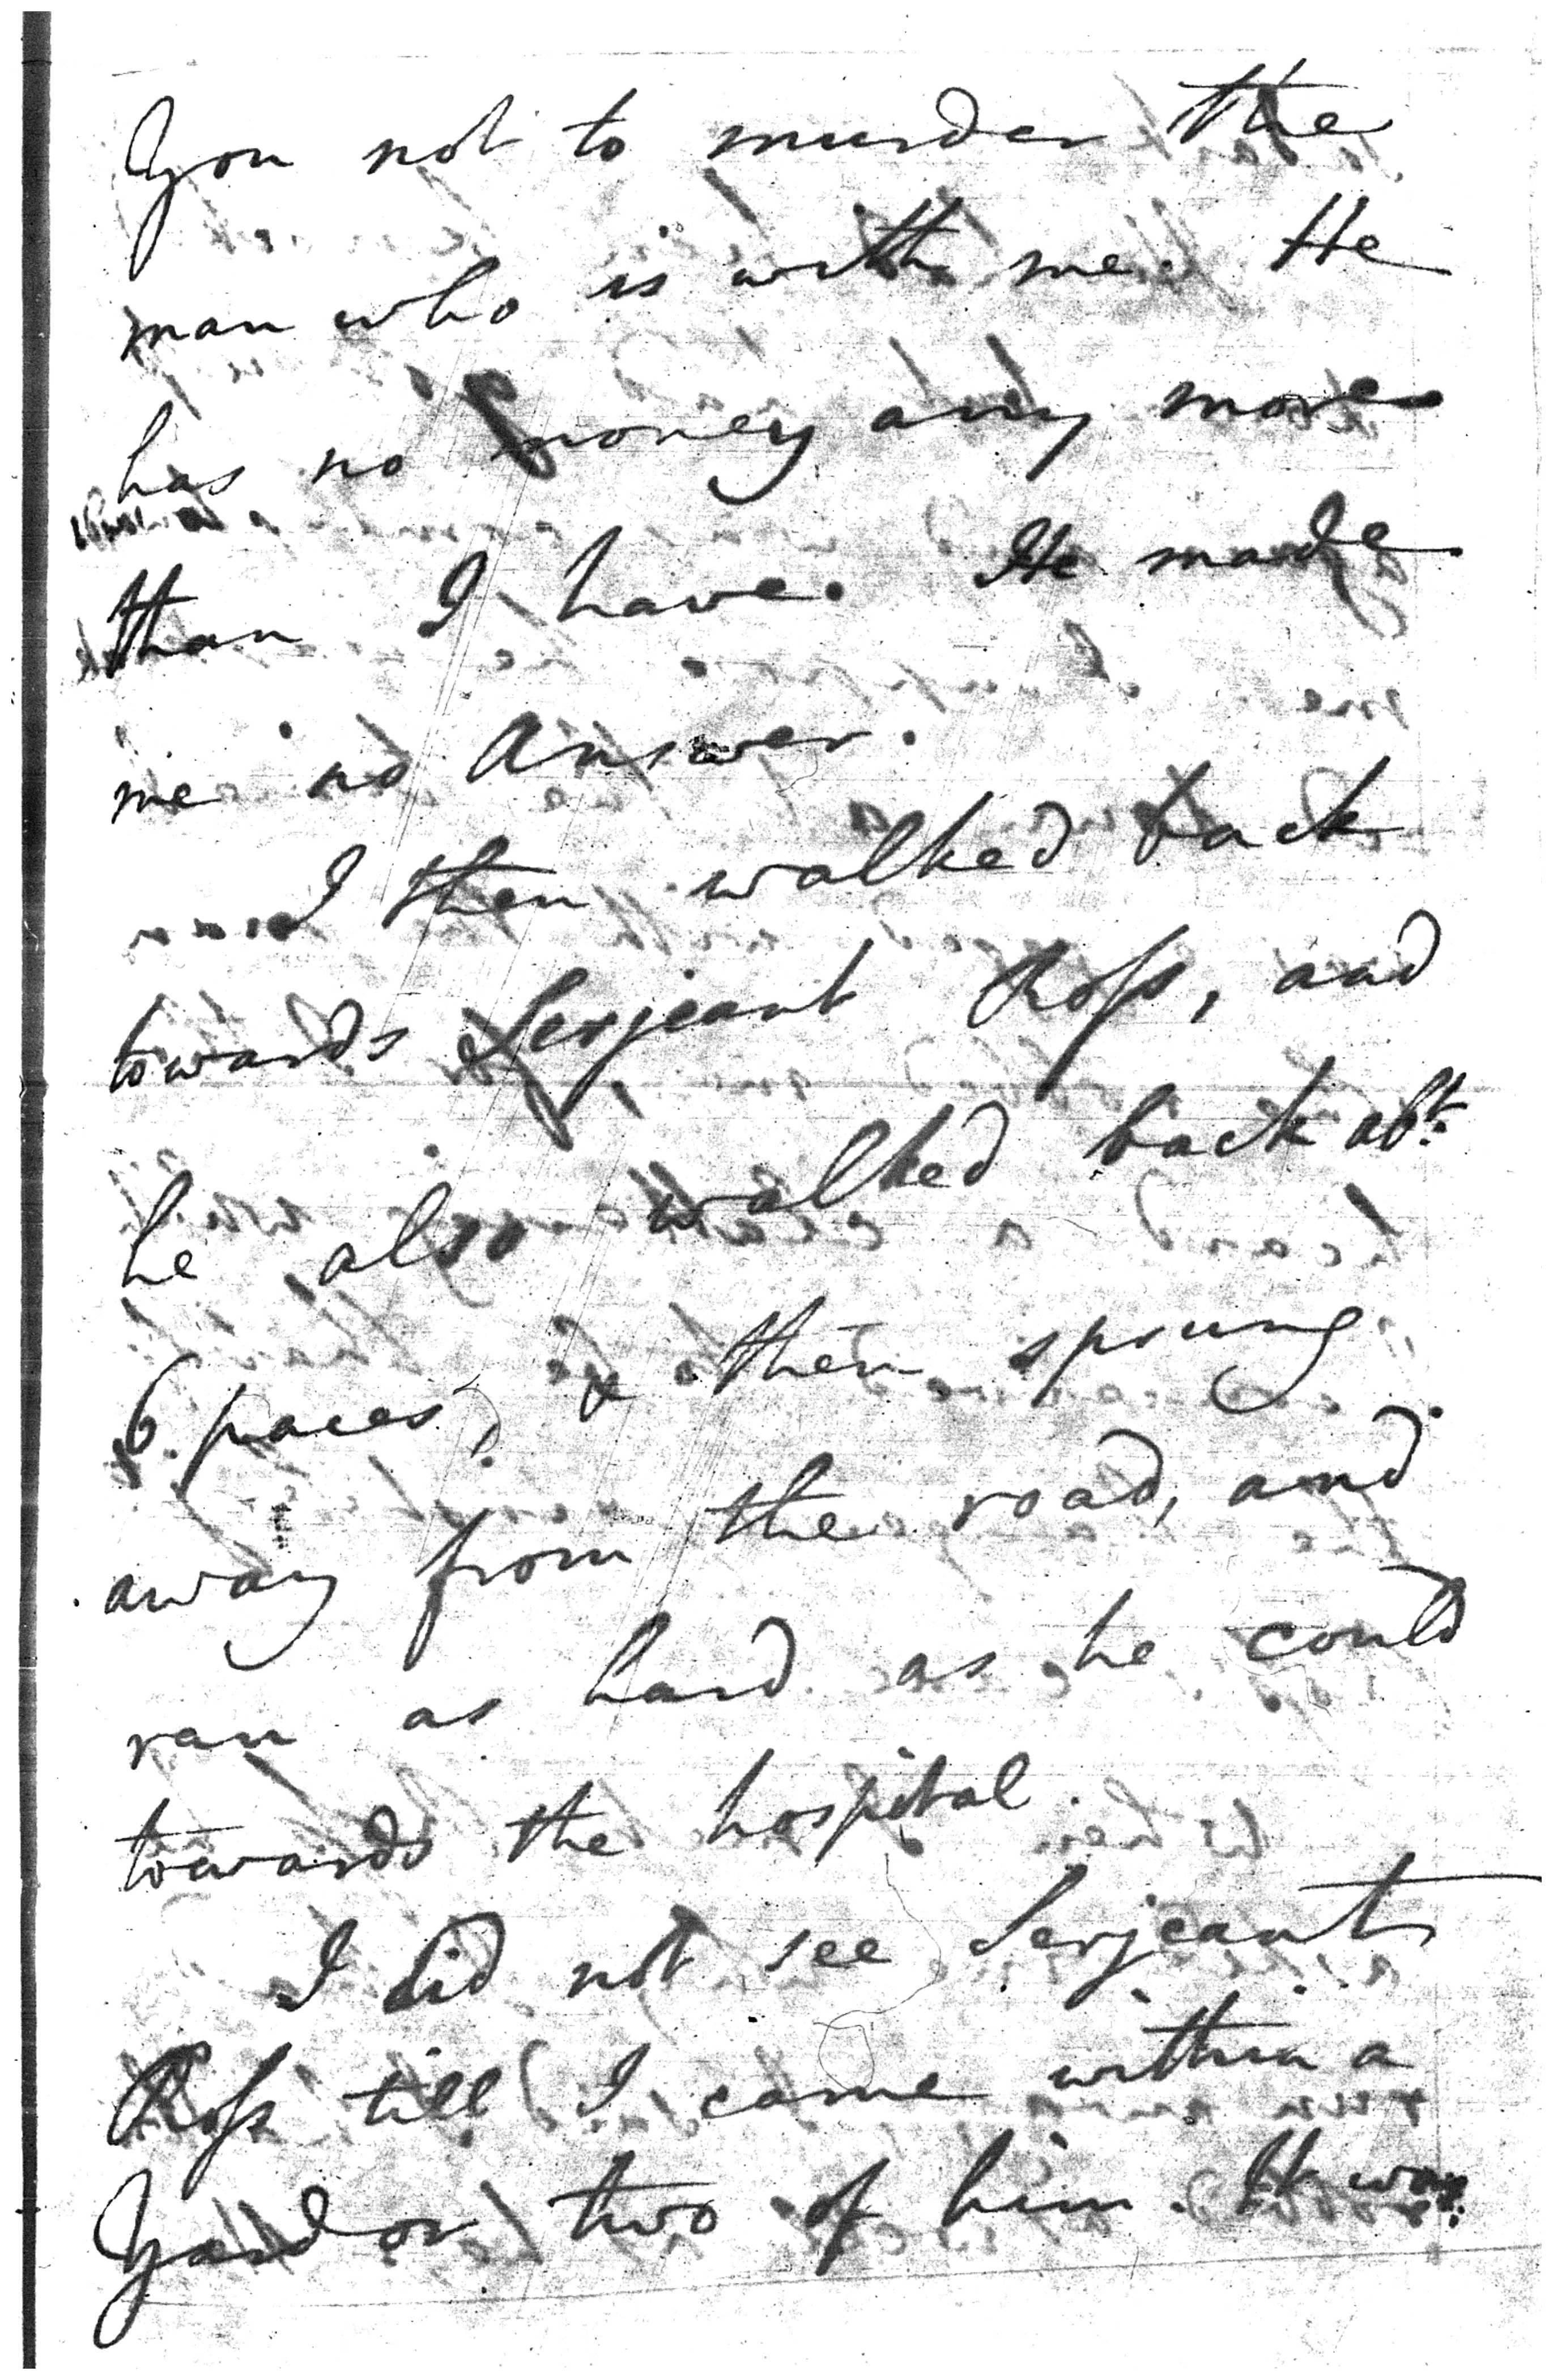 You not to murder the
man who is with me. He
has no money any more
than I have. He made
me no answer.
I then walked back
towards Serjeant Roſs, and
he also walked back abt.
6 paces, & then sprung
away from the road, and
ran as hard as he could
towards the hospital.
I did not see Serjeant
Roſs till I came within a
Yard or two of him. It was